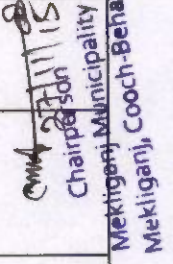 27/11/15
Chairperson
Mekliganj Municipality
Mekliganj, Cooch-Beha